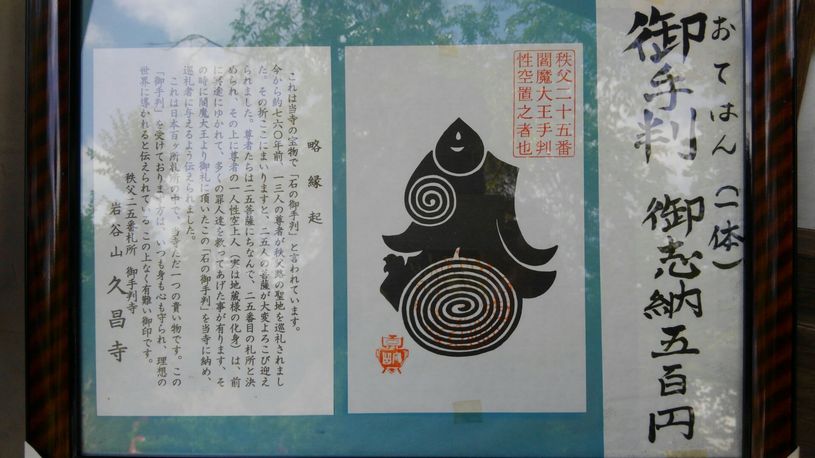 おてはん(一体)
御手判 御志納五百円
秩父二十五番
閻魔大王手判
性空置之者也
略縁起
これは当寺の宝物で「石の御手判」と言われています。
今から約七六〇年前、一三人の尊者が秩父路の聖地を巡礼されまし
た。その折ここにまいりますと、二五人の菩薩が大変よろこび迎え
られました。尊者たちは二五菩薩にちなんで、二五番目の札所と決
められ、その上に尊者の一人性空上人(実は地蔵様の化身)は、前
に冥途にゆかれて、多くの罪人達を救ってあげた事が有ります、そ
の時に閻魔大王より御礼に頂いたこの「石の御手判」を当寺に納め、
巡礼者に与えるよう伝えられました。
これは日本百ヶ所札所の中で、当寺ただ一つの貴い物です。この
「御手判」を受けております方は、いつも身も心も守られ、理想の
世界に導かれると伝えられている この上なく有難い御印です。
秩父二五番札所 御手判寺
岩谷山 久昌寺